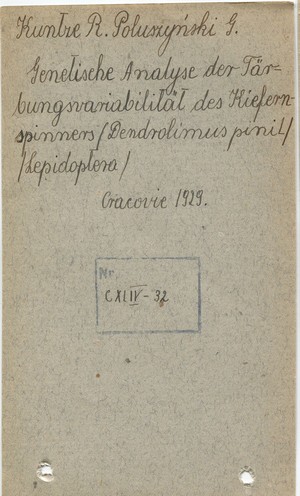 Kuntze R. Poluszyński G.
Genetische Analyse der Fär-
bungsvariabilität des Kiefern-
spinners /Dendrolimus pini L/
/Lepidoptera/
Cracovie 1929.
Nr.
CXLIV-32